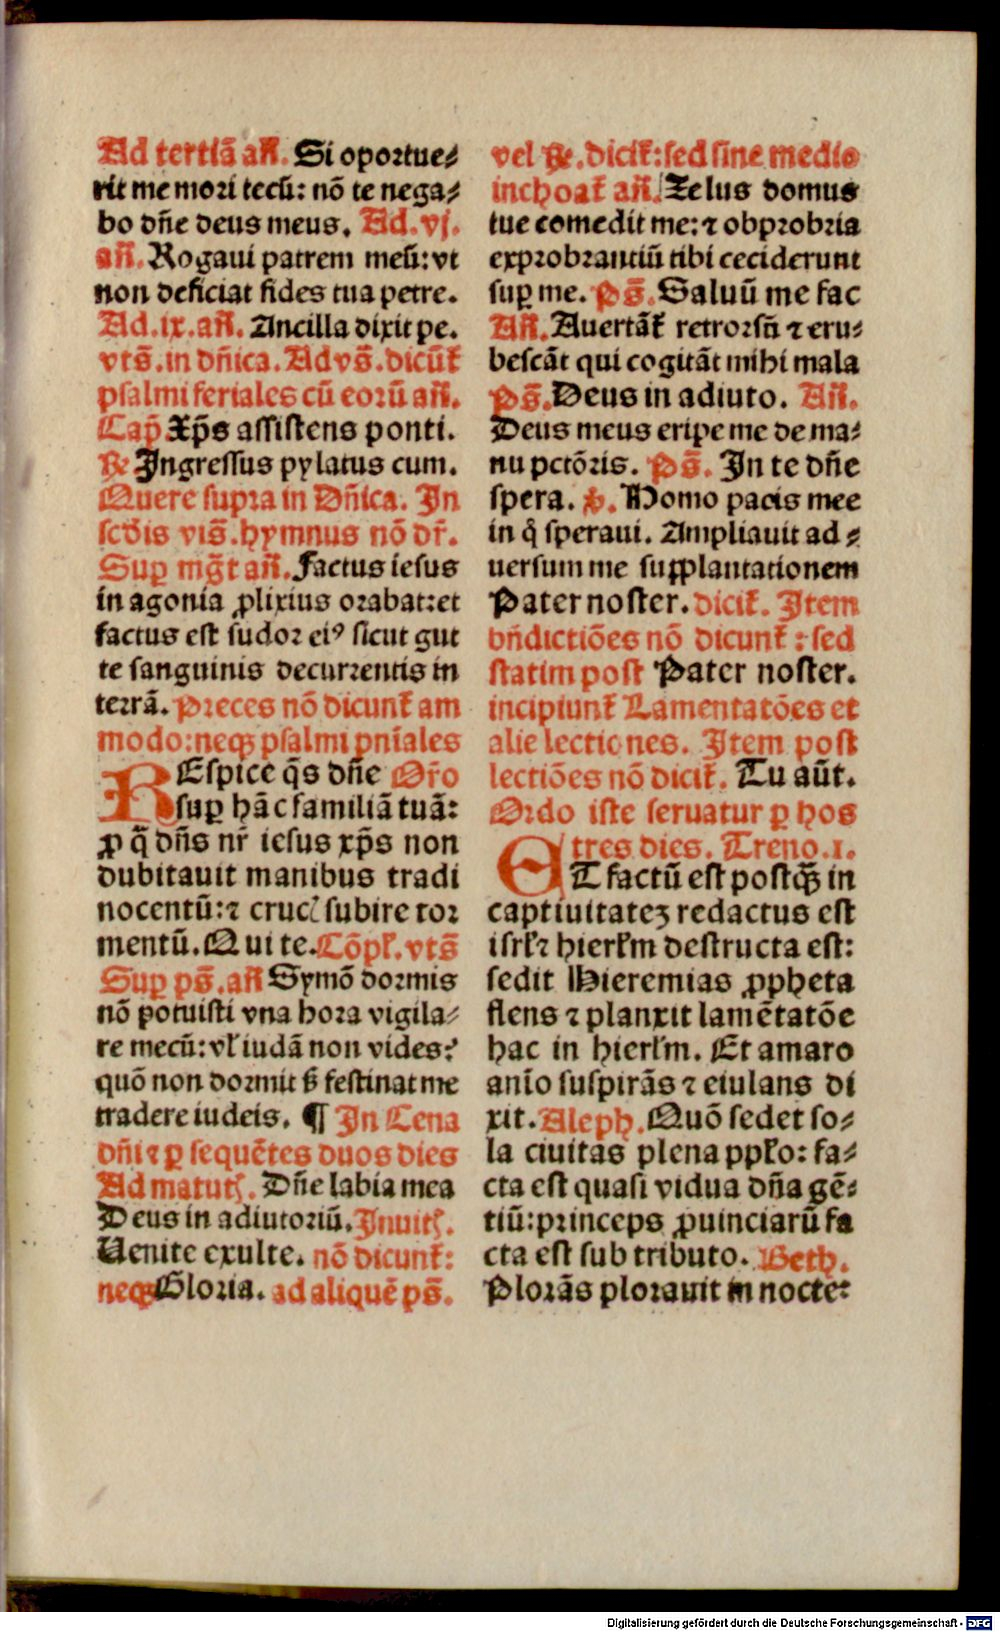 Ad tertiã añ. Si oportue⸗
rit me mori tecũ: nõ te nega⸗
bo dñe deus meus. Ad. vj.
añ. Rogaui patrem meũ: vt
non deficiat fides tua petre.
Ad. ix. añ. Ancilla dixit pe.
vts̃. in dñica. Ad vs̃. dicũt᷑
psalmi feriales cũ eorũ añ.
Cap̃ Xp̃s assistens ponti.
℟ Ingressus pylatus cum.
Quere supra in Dñica. In
scd̃is vis̃. hymnus nõ dr̃.
Sup̱ mg̃t añ. Factus iesus
in agonia ꝓlixius orabat: et
factus est sudor ei⁹ sicut gut
te sanguinis decurrentis in
terrã. Preces nõ dicunt᷑ am
modo: neqꝫ psalmi pñiales
REspice q̃s dñe Or̃o
sup̱ hãc familiã tuã:
ꝓ q̃ dñs nr̃ iesus xp̃s non
dubitauit manibus tradi
nocentũ: ⁊ crucꝭ subire tor
mentũ. Qui te. Cõpl̃. vts̃
Sup̱ ps̃. añ Symõ dormis
nõ potuisti vna hora vigila⸗
re mecũ: vl̃ iudã non vides:
quõ non dormit sꝫ festinat me
tradere iudeis. ¶ In Cena
dñi ⁊ ꝑ sequẽtes duos dies
Ad matutꝭ. Dñe labia mea
Deus in adiutoriũ. Inuitꝭ.
Uenite exulte. nõ dicunt᷑:
neqꝫ Gloria. ad aliquẽ ps̃.
vel ℟. dicit᷑: sed sine medio
inchoat᷑ añ. Zelus domus
tue comedit me: ⁊ obprobria
exprobrantiũ tibi ceciderunt
sup̱ me. Ps̃. Saluũ me fac
Añ. Auertãt᷑ retrorsũ ⁊ eru⸗
bescãt qui cogitãt mihi mala
Ps̃. Deus in adiuto. Añ.
Deus meus eripe me de ma⸗
nu pctõris. Ps̃. In te dñe
spera. ℣. Homo pacis mee
in q̊ speraui. Ampliauit ad⸗
uersum me supplantationem
Pater noster. dicit᷑. Item
bñdictiões nõ dicunt᷑: sed
statim post Pater noster.
incipiunt᷑ Lamentatões et
alie lectiones. Item post
lectiões nõ dicit᷑. Tu aũt.
Ordo iste seruatur ꝑ hos
tres dies. Treno. 1.
ET factũ est postqꝫ̃ in
captiuitateꝫ redactus est
isrl̃ ⁊ hierl̃m destructa est:
sedit Hieremias ꝓpheta
flens ⁊ planxit lamẽtatõe
hac in hierl̃m. Et amaro
anĩo suspirãs ⁊ eiulans di
xit. Aleph. Quõ sedet so⸗
la ciuitas plena ppl̃o: fa⸗
cta est quasi vidua dña gẽ⸗
tiũ: princeps ꝓuinciarũ fa
cta est sub tributo. Beth.
Plorãs plorauit in nocte:
Digitalisierung gefördert durch die Deutsche Forschungsgemeinschaft - DFG